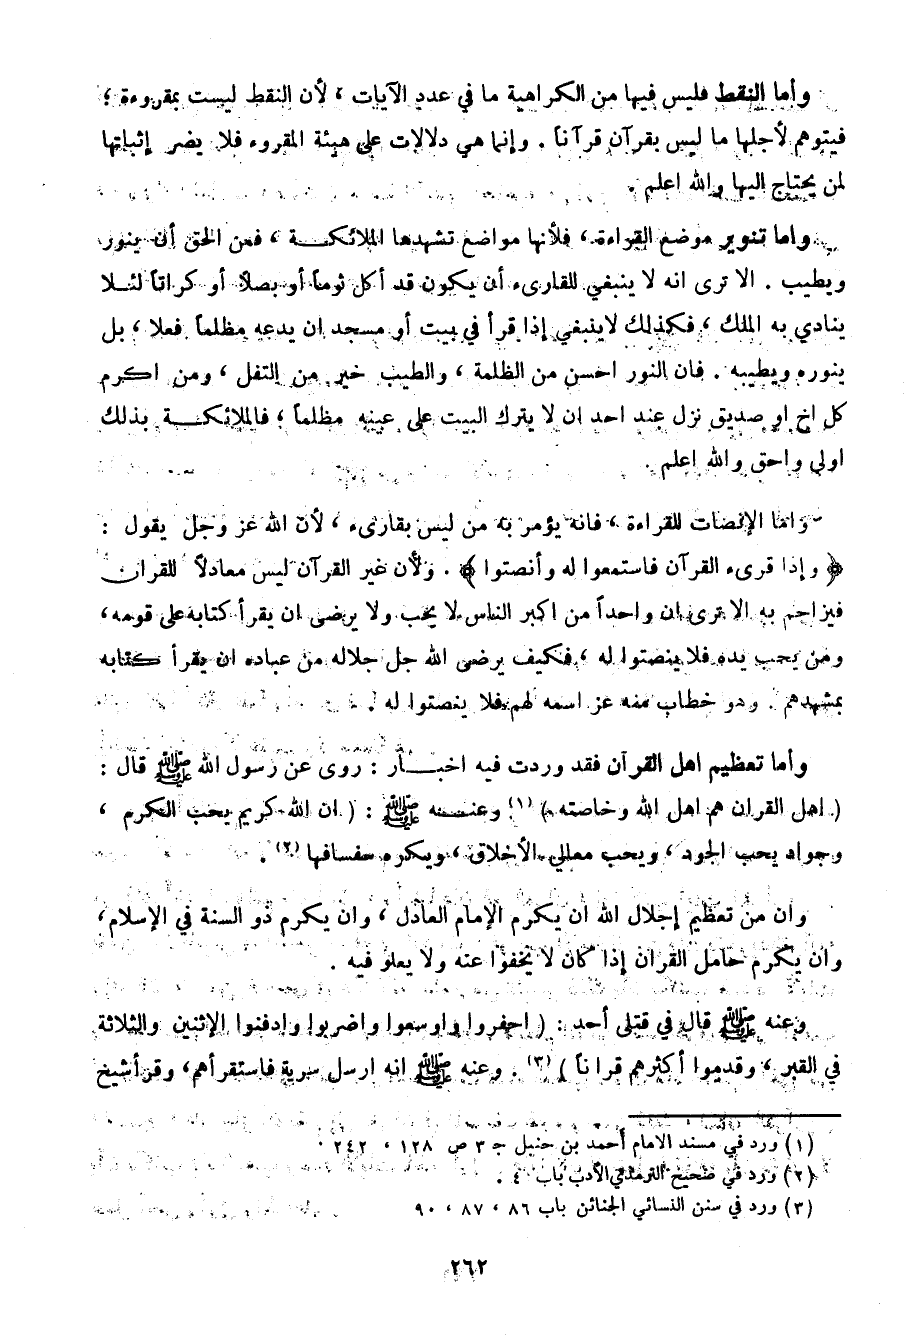 وأما النقط فليس فيها من الكراهية ما في عدد الآيات ، لأن النقط ليست بمقروءة ؛
فيتوهم لأجلها ما ليس بقرآن قرآناً . وإنما هي دلالات على هيئة المقروء فلا يضر إثباتها
لمن يحتاج اليها والله اعلم .
واما تنوير موضع القراءة ، فلأنها مواضع تشهدها الملائكة ، فمن الحق أن ينور
ويطيب . الا ترى انه لا ينبغي للقارىء أن يكون قد أكل ثوماً أو بصلاً أو كراثاً لئلا
ينادي به الملك ، فكذلك لاينبغي إذا قرأ في بيت أو مسجد ان يدعه مظلماً فعلا ، بل
ينوره ويطيبه . فان النور احسن من الظلمة ، والطيب خير من التفل ، ومن اكرم
كل اخ او صديق نزل عند احد ان لا يترك البيت على عينه مظلماً ؛ فالملائكة بذلك
اولى واحق والله اعلم .
واما الإنصات للقراءة ، فانه يؤمر به من ليس بقارىء ، لأن الله عز وجل يقول :
﴿ وإذا قرىء القرآن فاستمعوا له وأنصتوا ﴾ . ولأن غير القرآن ليس معادلاً للقران
فيزاحم به الا ترى ان واحداً من اكبر الناس لا يحب ولا يرضى ان يقرأ كتابه على قومه ،
ومن يحب يده فلا ينصتوا له ، فكيف يرضى الله جل جلاله من عباده ان يقرأ كتابه
بمشهدهم . وهو خطاب منه عز اسمه لهم فلا ينصتوا له .
وأما تعظيم اهل القرآن فقد وردت فيه اخبار : روى عن رسول الله ﷺ قال :
( اهل القران هم اهل الله وخاصته ) (١) وعنه ﷺ : ( ان الله كريم يحب الكرم ،
وجواد يحب الجود ، ويحب معالي الأخلاق ، ويكره سفسافها (٢) .
وان من تعظيم إجلال الله ان يكرم الإمام العادل ، وان يكرم ذو السنة في الإسلام ،
وان يكرم حامل القران إذا كان لا يخفوا عنه ولا يعلو فيه .
وعنه ﷺ قال في قتلى أحد : ( احفروا واوسعوا واضربوا وادفنوا الإثنين والثلاثة
في القبر ، وقدموا أكثرهم قراناً ) (٣) . وعنه ﷺ انه ارسل سرية فاستقرأهم ، وقرأ شيخ
(١) ورد في مسند الامام أحمد بن حنبل ج ٣ ص ١٢٨ ، ٢٤٢ .
(٢) ورد في صحيح الترمذي الأدب باب ٤٠ .
(٣) ورد في سنن النسائي الجنائن باب ٨٦ ، ٨٧ ، ٩٠
٢٦٢